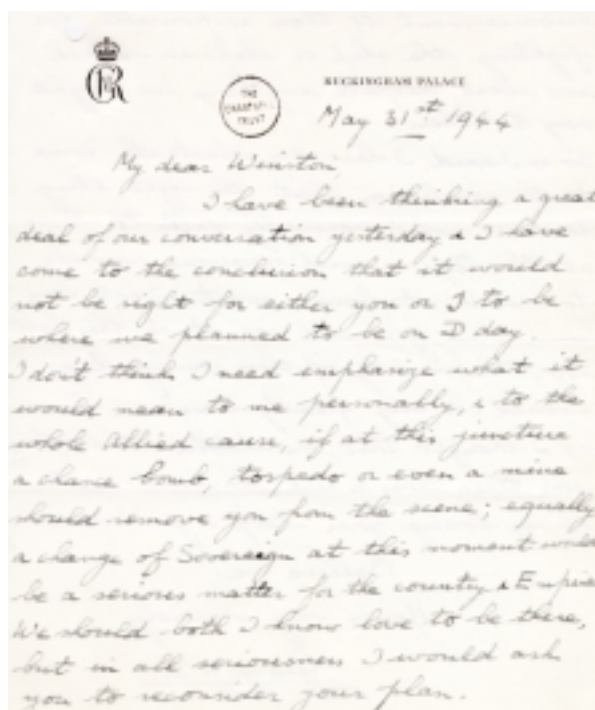 GRVI
THE
CHARTWELL
TRUST
BUCKINGHAM PALACE
May 31st 1944
My dear Winston,
I have been thinking a great
deal of our conversation yesterday & I have
come to the conclusion that it would
not be right for either you or I to be
where we planned to be on D day.
I don't think I need emphasize what it
would mean to me personally, & to the
whole Allied cause, if at this juncture
a chance bomb, torpedo or even a mine
should remove you from the scene; equally
a change of Sovereign at this moment would
be a serious matter for the country & Empire.
We should both I know love to be there,
but in all seriousness I would ask
you to reconsider your plan.